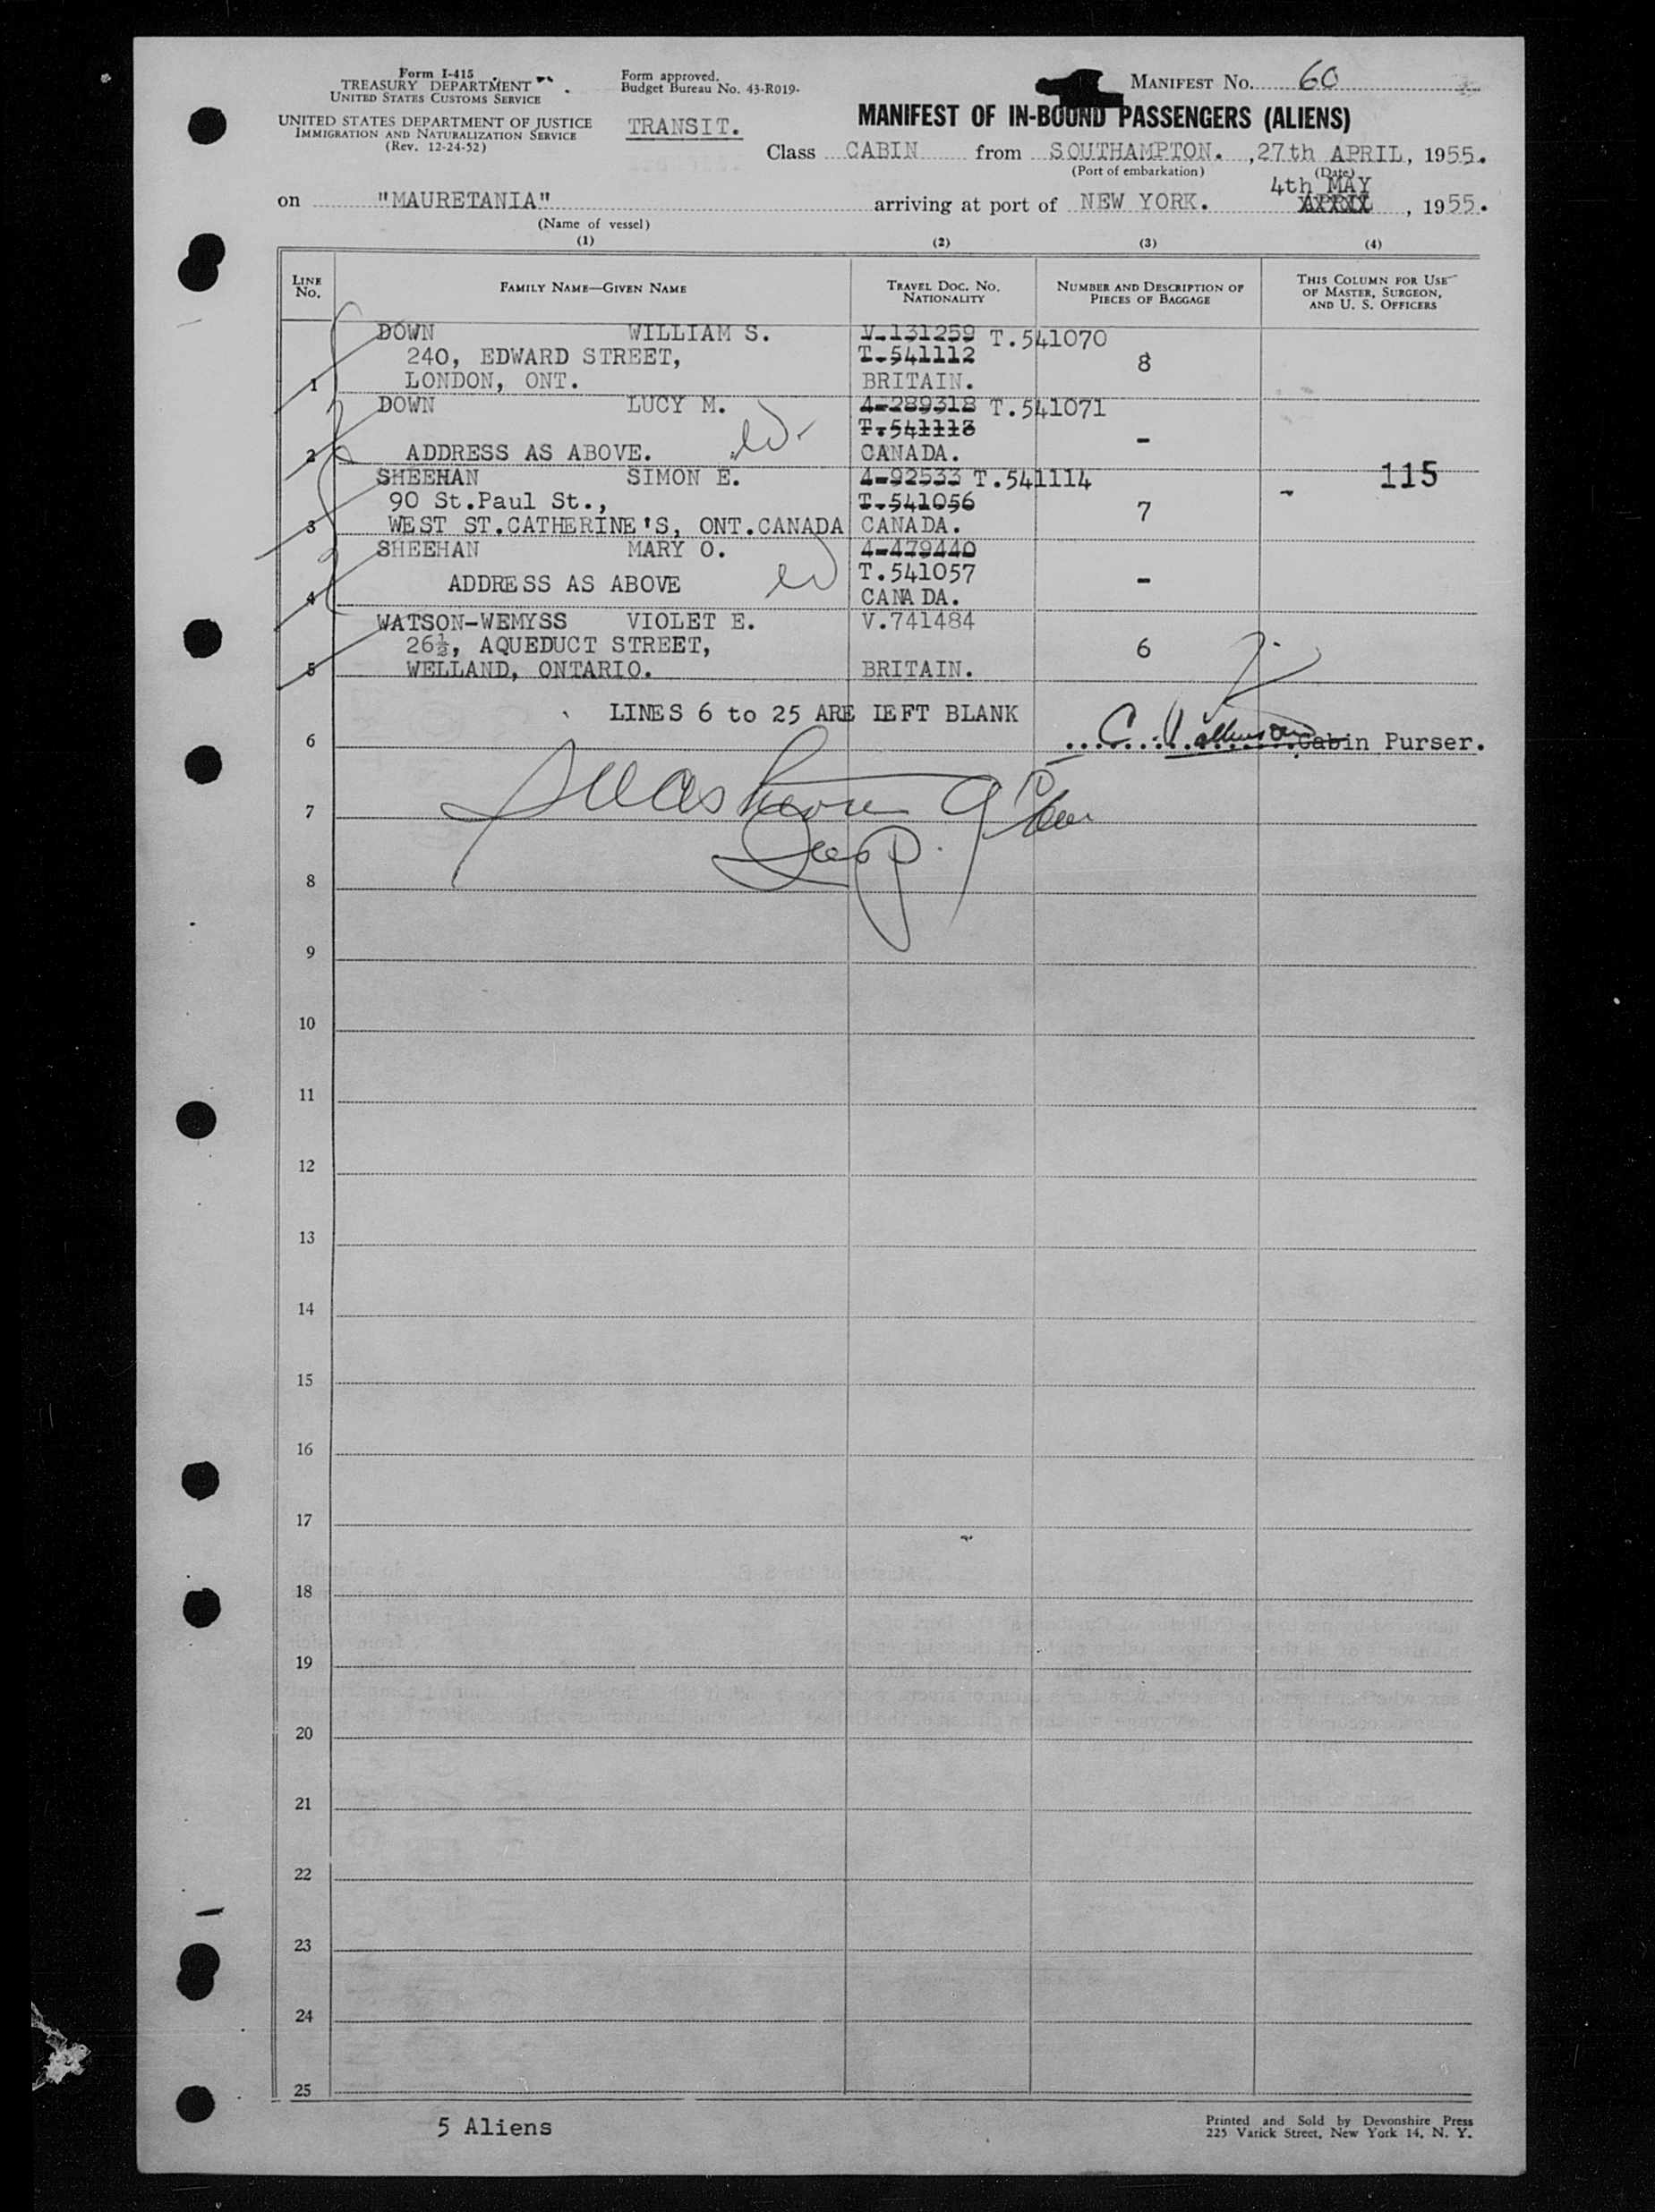 Form I-415
TREASURY DEPARTMENT
UNITED STATES CUSTOMS SERVICE
UNITED STATES DEPARTMENT OF JUSTICE
IMMIGRATION AND NATURALIZATION SERVICE
(Rev. 12-24-52)
Form approved.
Budget Bureau No. 43-R019-
TRANSIT.
MANIFEST NO. 60
MANIFEST OF IN-BOUND PASSENGERS (ALIENS)
Class CABIN from SOUTHAMPTON. , 27th APRIL, 1955.
(Port of embarkation) (Date)
on "MAURETANIA" arriving at port of NEW YORK. 4th MAY APRIL , 1955.
(Name of vessel)
(1) (2) (3) (4)
LINE NO. FAMILY NAME—GIVEN NAME TRAVEL DOC. NO. NATIONALITY NUMBER AND DESCRIPTION OF PIECES OF BAGGAGE THIS COLUMN FOR USE OF MASTER, SURGEON, AND U. S. OFFICERS
DOWN WILLIAM S. V.131259 T.541070
240, EDWARD STREET, T.541112 8
1 LONDON, ONT. BRITAIN.
DOWN LUCY M. 4-289318 T.541071
T.541113 -
2 ADDRESS AS ABOVE. CANADA.
SHEEHAN SIMON E. 4-92533 T.541114 115
90 St.Paul St., T.541056 7
3 WEST ST.CATHERINE'S, ONT.CANADA CANADA.
SHEEHAN MARY O. 4-479440
ADDRESS AS ABOVE T.541057 -
4 CANADA.
WATSON-WEMYSS VIOLET E. V.741484
26½, AQUEDUCT STREET, 6
5 WELLAND, ONTARIO. BRITAIN.
LINES 6 to 25 ARE LEFT BLANK
6 Cabin Purser.
7
8
9
10
11
12
13
14
15
16
17
18
19
20
21
22
23
24
25
5 Aliens
Printed and Sold by Devonshire Press
225 Varick Street, New York 14, N. Y.